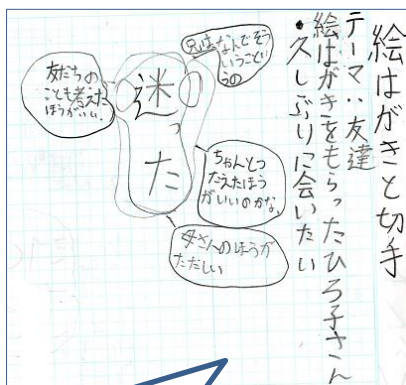 絵はがきと切手
テーマ：友達
絵はがきをもらったひろ子さん
・久しぶりに会いたい
兄はなんでそう
いうこという
の
友だちの
ことも考えた
ほうがいい.
迷
っ
た
ちゃんとつ
たえたほう
がいいのかな、
母さんのほうが
ただしい